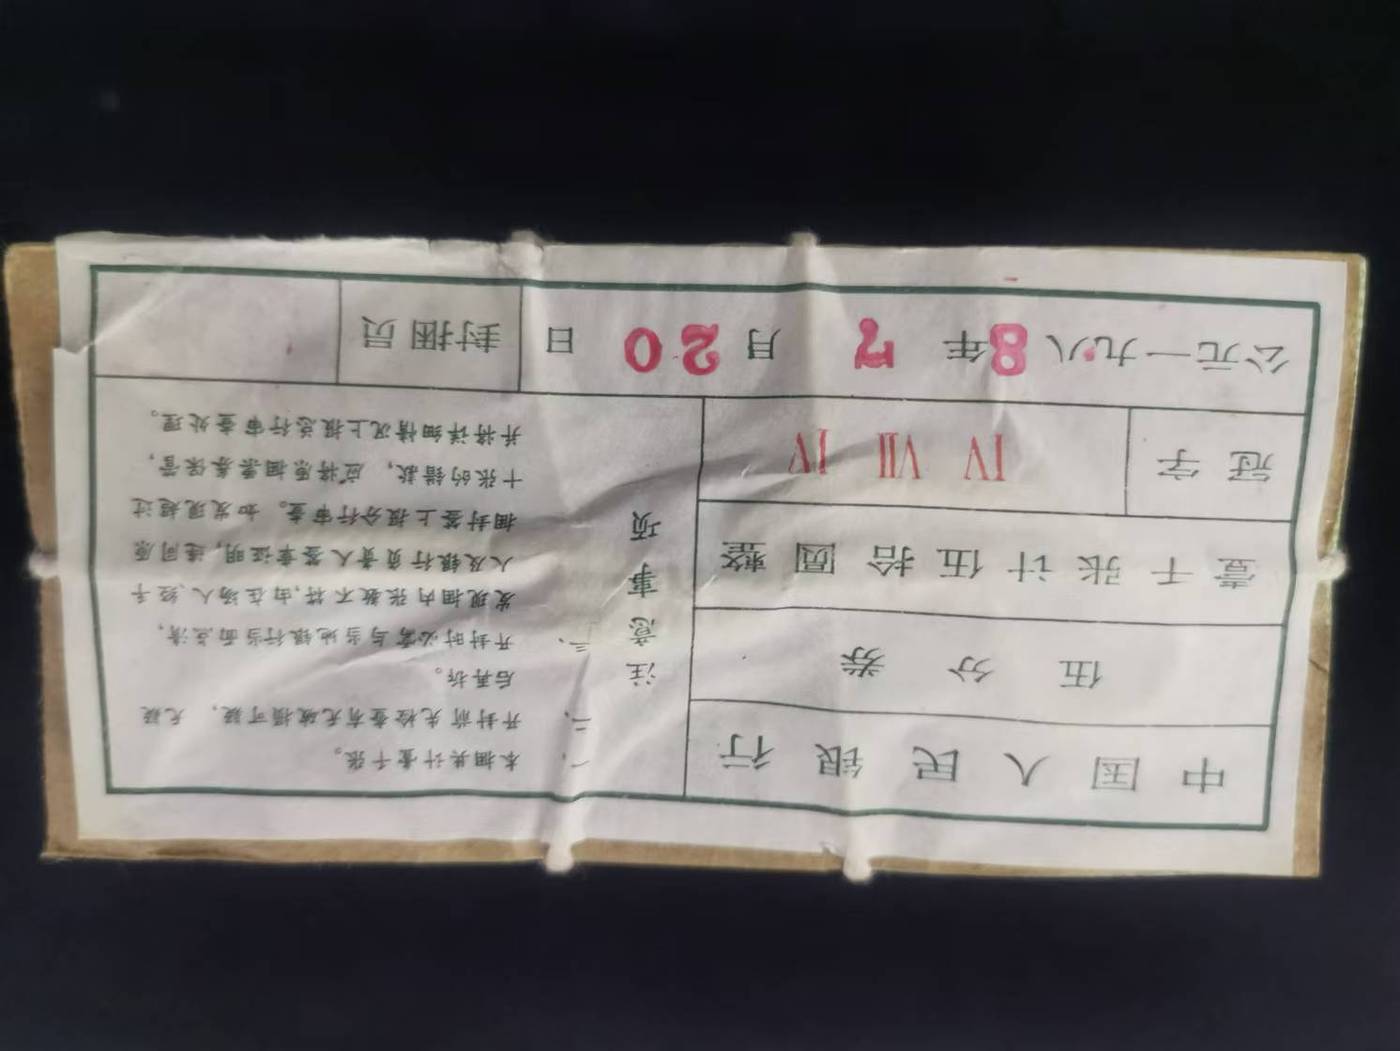 中国人民银行
伍分券
壹千张计伍拾圆整
冠字 IV VII IV
注意事项
一、本捆共计壹千张。
二、开封前先检查有无破损可疑，无疑
后再拆。
三、开封时必需与当地银行当面点清，
发现捆内张数不符,由在场人、经手
人及银行负责人签章证明,连同原
捆封签上报分行审查。如发现超过
十张的错款，应将原捆票券保管，
并将详细情况上报总行审查处理。
公元一九八8年7月20日 封捆员